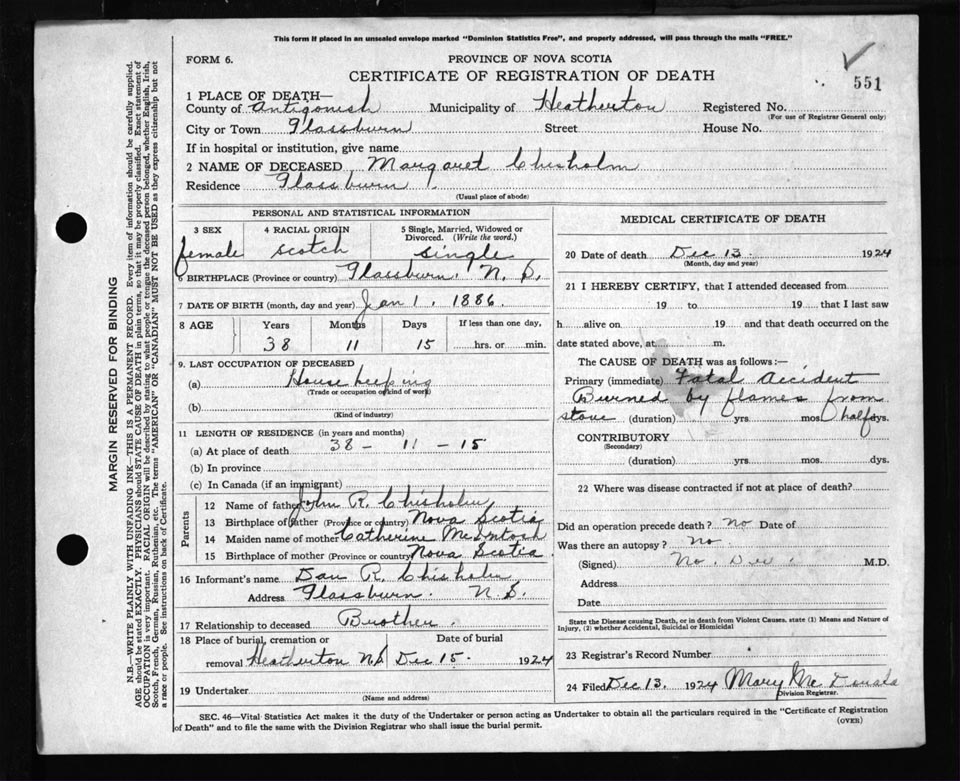 This form if placed in an unsealed envelope marked "Dominion Statistics Free", and properly addressed, will pass through the mails "FREE."
FORM 6.
PROVINCE OF NOVA SCOTIA
551
CERTIFICATE OF REGISTRATION OF DEATH
1 PLACE OF DEATH—
County of Antigonish Municipality of Heatherton Registered No.
(For use of Registrar General only)
City or Town Glassburn Street House No.
If in hospital or institution, give name
2 NAME OF DECEASED Margaret Chisholm
Residence Glassburn
(Usual place of abode)
PERSONAL AND STATISTICAL INFORMATION
3 SEX 4 RACIAL ORIGIN 5 Single, Married, Widowed or Divorced. (Write the word.)
female scotch single
6 BIRTHPLACE (Province or country) Glassburn. N.S.
7 DATE OF BIRTH (month, day and year) Jan 1. 1886.
8 AGE Years Months Days If less than one day,
38 11 15 hrs. or min.
9. LAST OCCUPATION OF DECEASED
(a) House keeping
(Trade or occupation or kind of work)
(b)
(Kind of industry)
11 LENGTH OF RESIDENCE (in years and months)
(a) At place of death 38 - 11 - 15
(b) In province
(c) In Canada (if an immigrant)
Parents
12 Name of father John R. Chisholm
13 Birthplace of father (Province or country) Nova Scotia
14 Maiden name of mother Catherine McIntosh
15 Birthplace of mother (Province or country) Nova Scotia
16 Informant's name Dan R. Chisholm
Address Glassburn. N.S.
17 Relationship to deceased Brother.
18 Place of burial, cremation or removal Date of burial
Heatherton NS Dec 15. 1924
19 Undertaker
(Name and address)
MEDICAL CERTIFICATE OF DEATH
20 Date of death Dec 13 1924
(Month, day and year)
21 I HEREBY CERTIFY, that I attended deceased from
19 to 19 that I last saw
h alive on 19 and that death occurred on the
date stated above, at m.
The CAUSE OF DEATH was as follows:—
Primary (immediate) Fatal accident
Burned by flames from
stove (duration) yrs. mos. half dys.
CONTRIBUTORY
(Secondary)
(duration) yrs. mos. dys.
22 Where was disease contracted if not at place of death?
Did an operation precede death? No Date of
Was there an autopsy? No.
(Signed) No. M.D.
Address
Date
State the Disease causing Death, or in death from Violent Causes, state (1) Means and Nature of Injury, (2) whether Accidental, Suicidal or Homicidal
23 Registrar's Record Number
24 Filed Dec 13. 1924 Mary McDonald
Division Registrar.
SEC. 46—Vital Statistics Act makes it the duty of the Undertaker or person acting as Undertaker to obtain all the particulars required in the "Certificate of Registration
of Death" and to file the same with the Division Registrar who shall issue the burial permit.
(OVER)
MARGIN RESERVED FOR BINDING
N.B.—WRITE PLAINLY WITH UNFADING INK—THIS IS A PERMANENT RECORD. Every item of information should be carefully supplied.
AGE should be stated EXACTLY. PHYSICIANS should STATE CAUSE OF DEATH in plain terms, so that it may be properly classified. Exact statement of
OCCUPATION is very important. RACIAL ORIGIN will be described by stating to what people or tongue the deceased person belonged, whether English, Irish,
Scotch, French, German, Russian, Ruthenian, etc. The terms "AMERICAN" or "CANADIAN" MUST NOT BE USED as they express citizenship but not
a race or people. See instructions on back of Certificate.